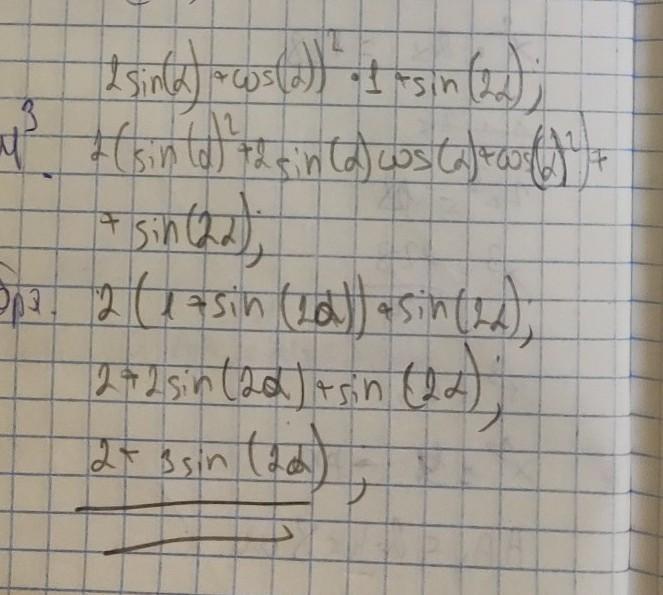 2sin(α)+cos(α))²·1+sin(2α);
м³. 2(sin(α)²+2sin(α)cos(α)+cos(α)²)+
+sin(2α);
2(1+sin(2α))+sin(2α);
2+2sin(2α)+sin(2α);
2+3sin(2α);